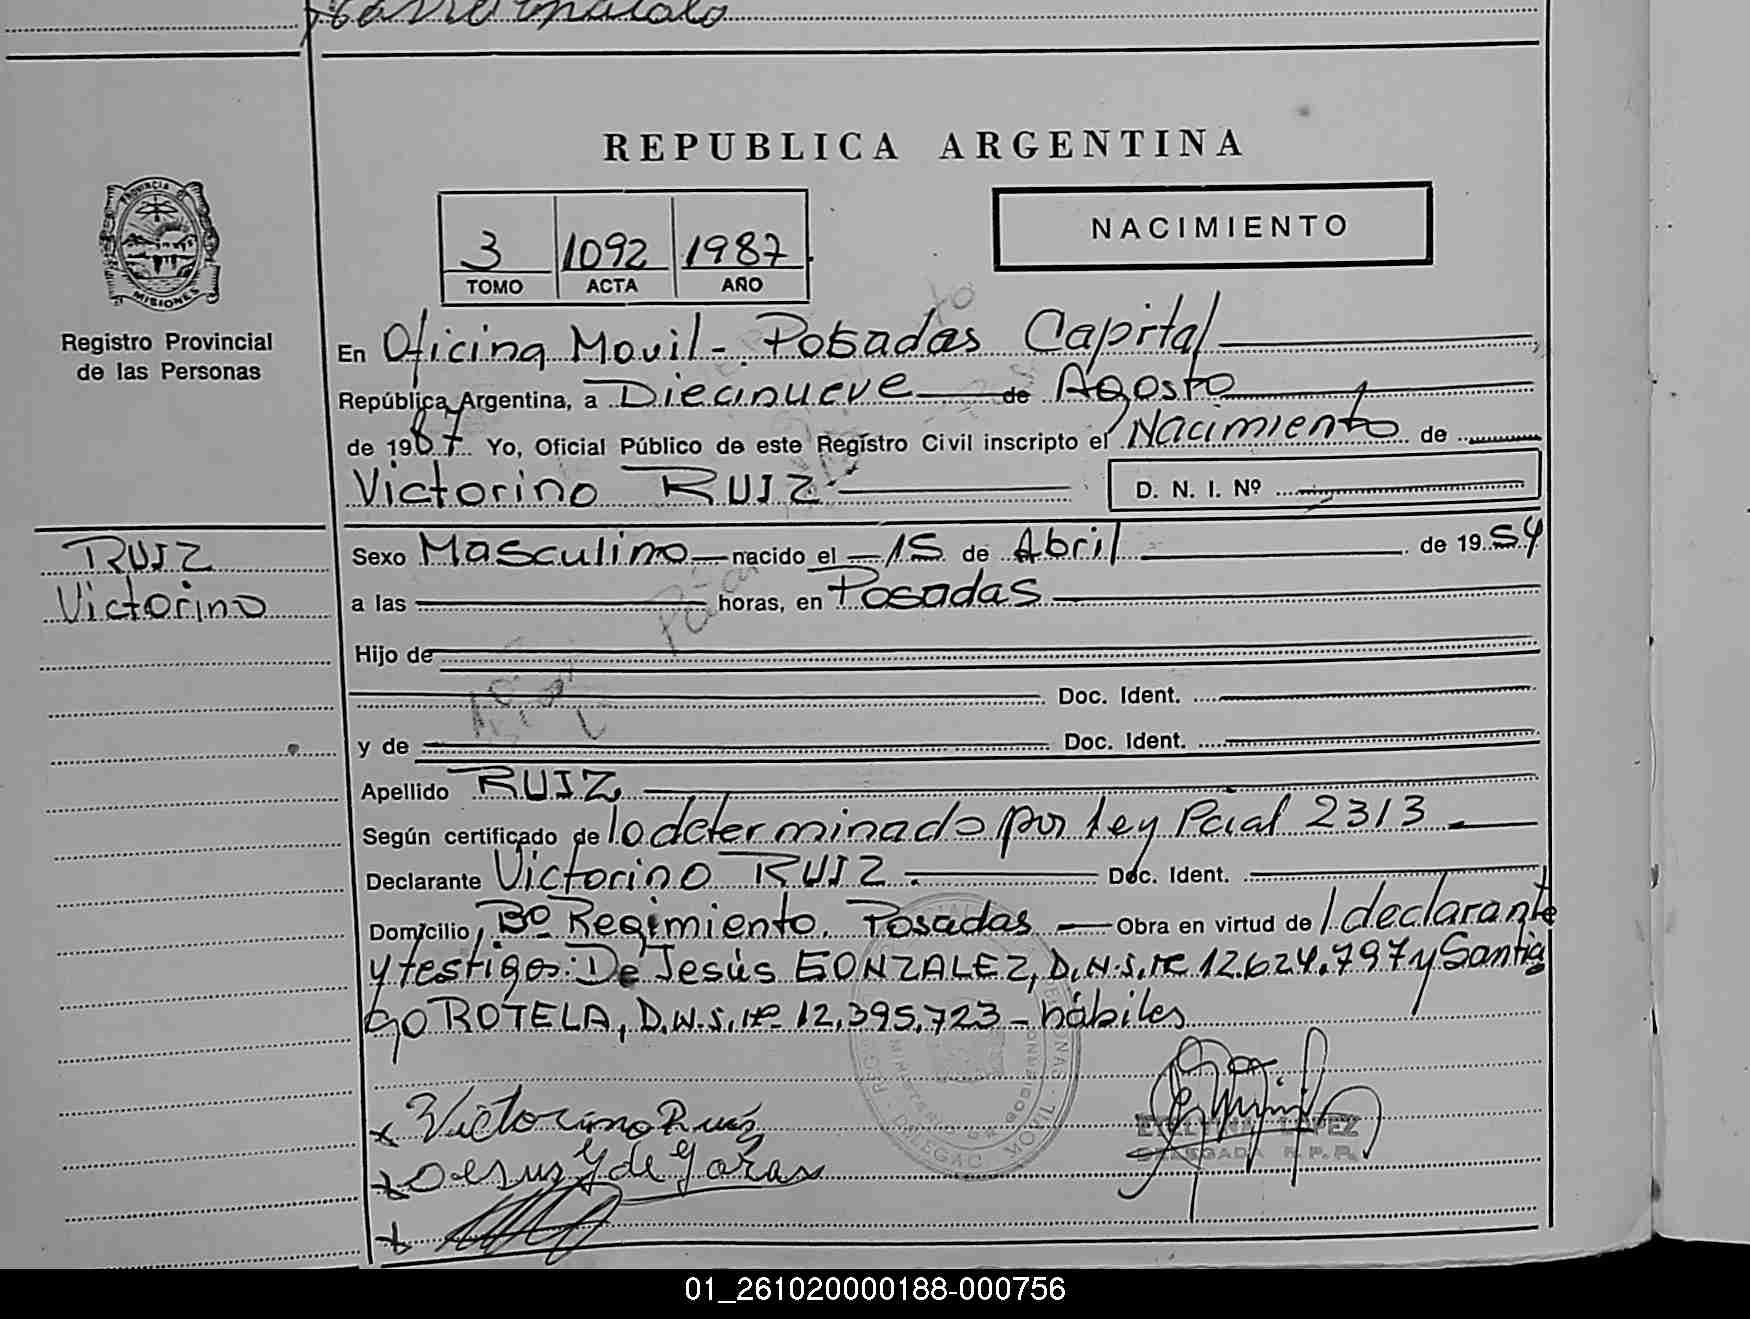 REPUBLICA ARGENTINA
PROVINCIA DE
MISIONES
Registro Provincial
de las Personas
3 1092 1987
TOMO ACTA AÑO
NACIMIENTO
En Oficina Movil - Posadas Capital
República Argentina, a Diecinueve de Agosto
de 1987 Yo, Oficial Público de este Registro Civil inscripto el Nacimiento de
Victorino RUIZ D. N. I. Nº
RUIZ
Victorino
Sexo Masculino nacido el 15 de Abril de 1954
a las horas, en Posadas
Hijo de
Doc. Ident.
y de Doc. Ident.
Apellido RUIZ
Según certificado de lo determinado por Ley Pcial 2313
Declarante Victorino RUIZ Doc. Ident.
Domicilio Bº Regimiento. Posadas Obra en virtud de / declarante
y testigos: De Jesús GONZALEZ, D.N.I. Nº 12.624.797 y Santia
go ROTELA, D.N.I. Nº 12.395.723 - hábiles
x Victorino Ruiz
x
LOPEZ
DELEGADA R. P. P.
x
01_261020000188-000756